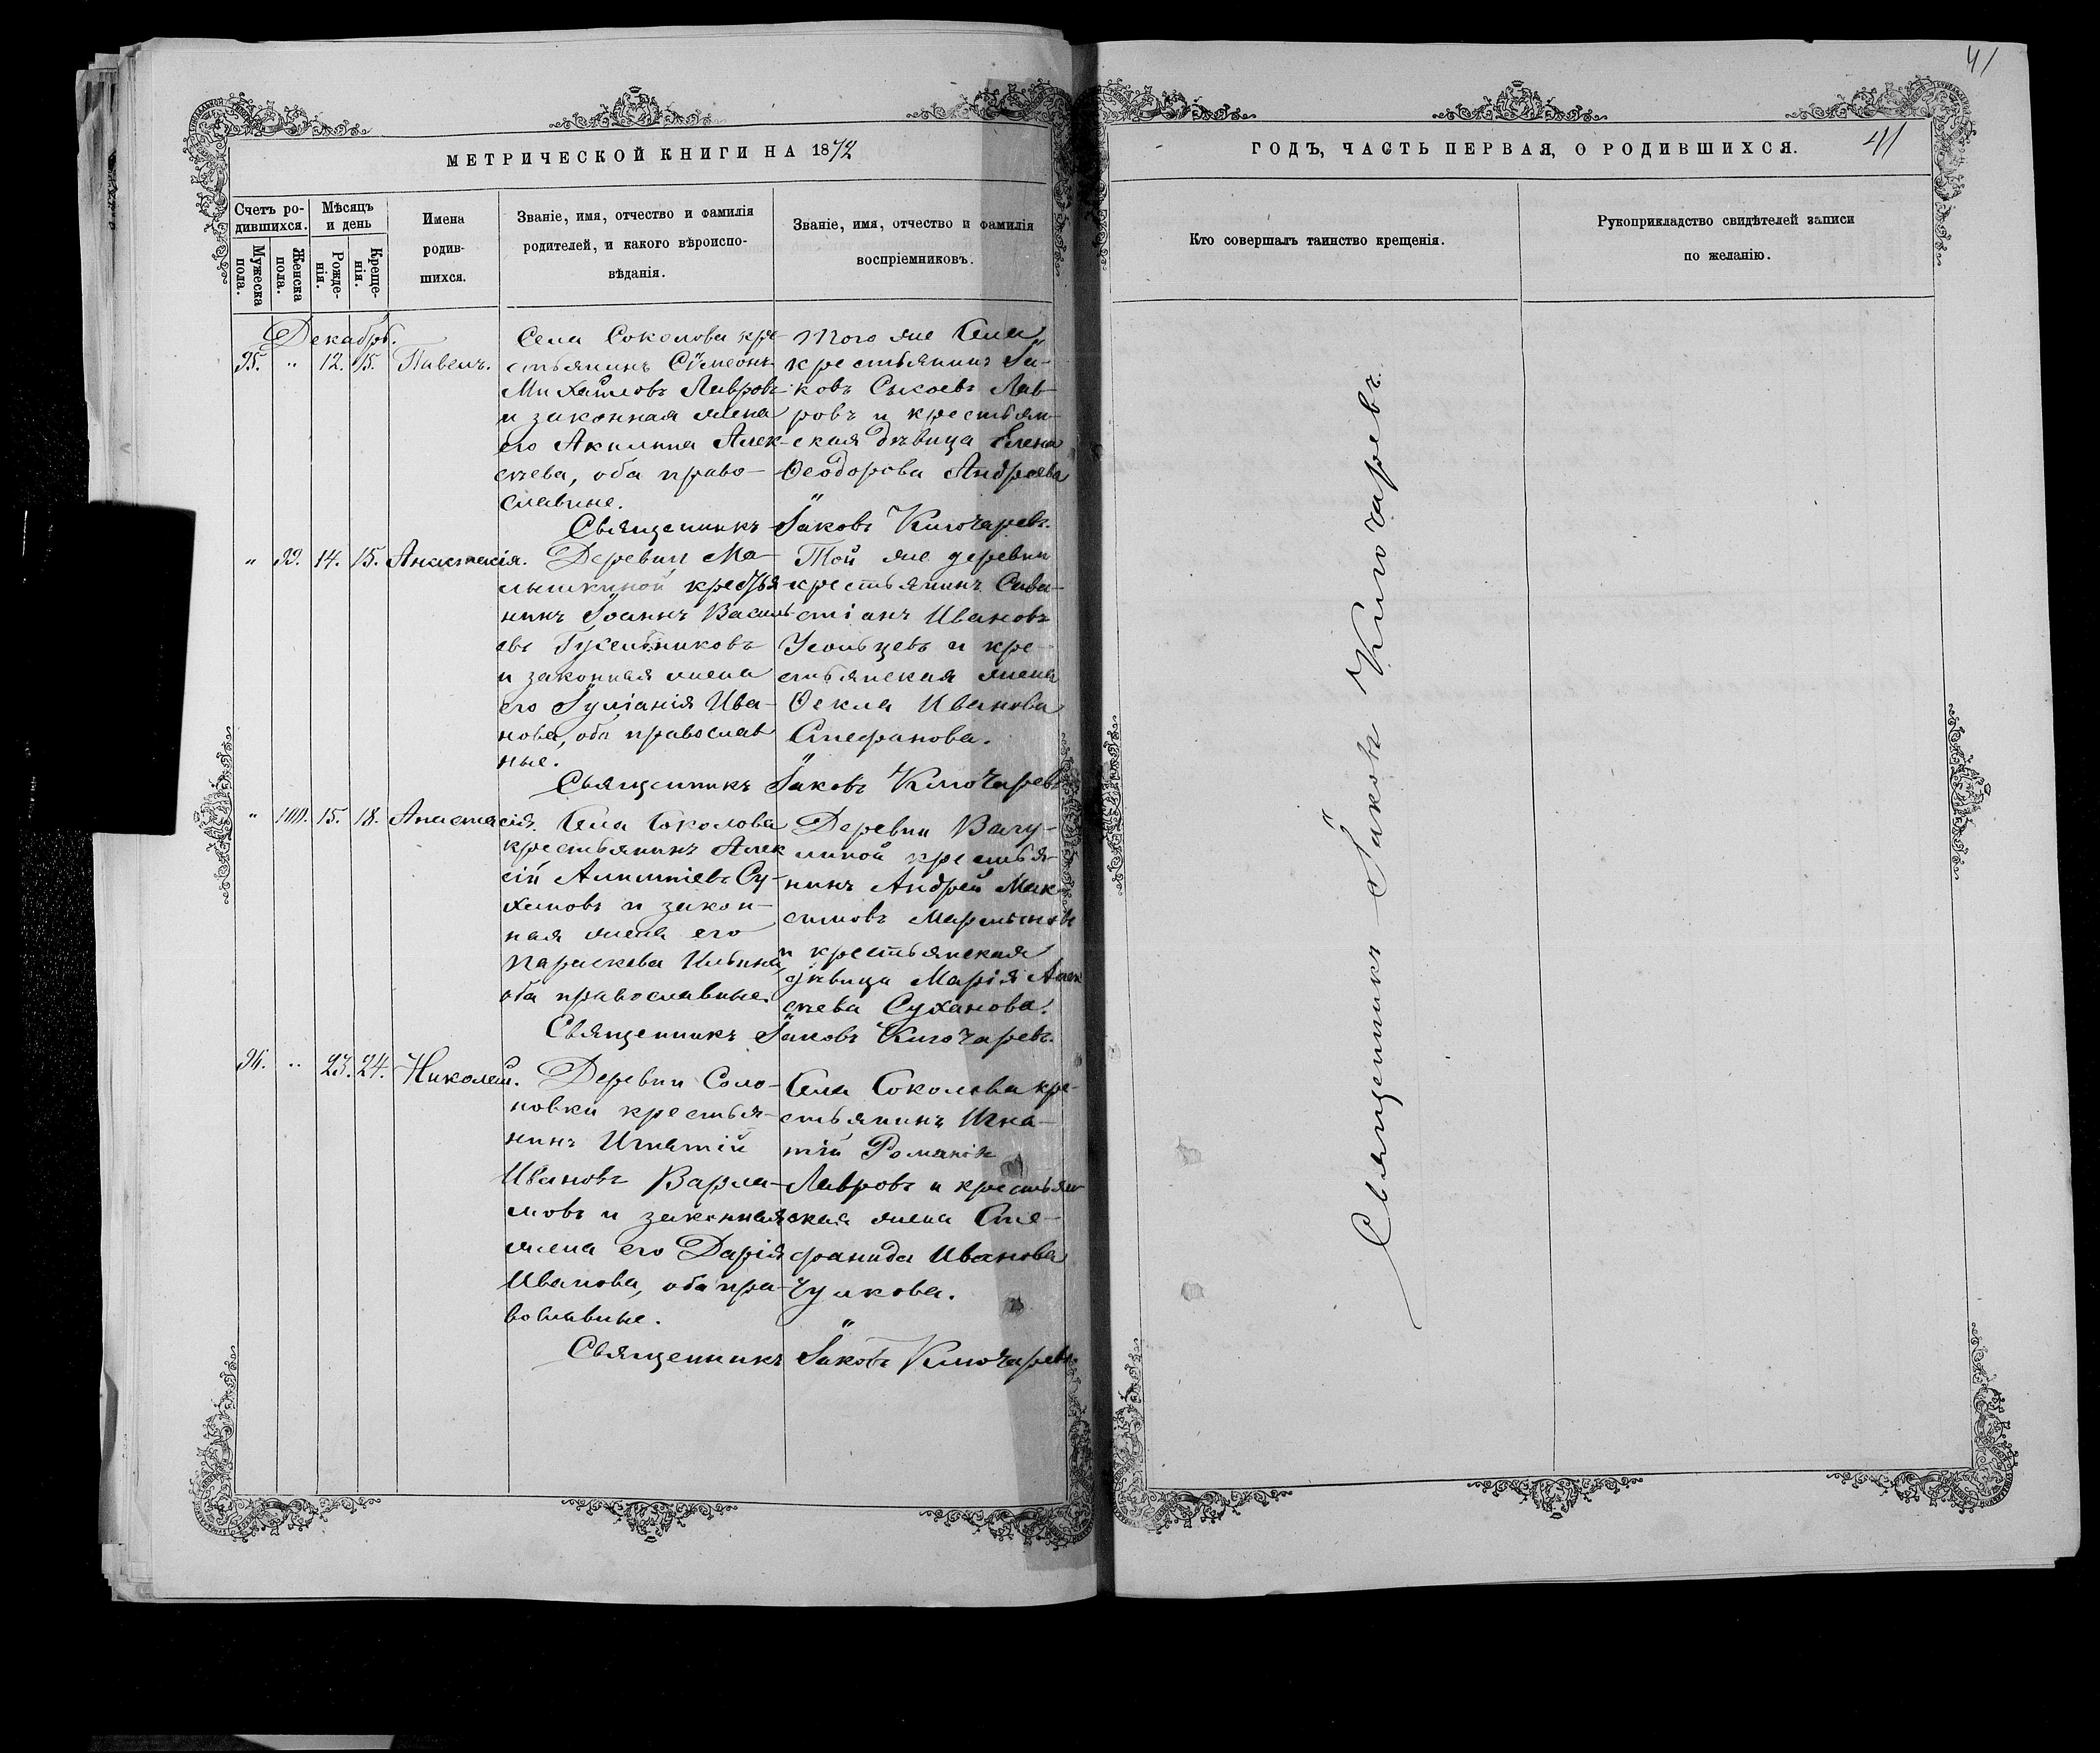 41
МЕТРИЧЕСКОЙ КНИГИ НА 1872
ГОДЪ, ЧАСТЬ ПЕРВАЯ, О РОДИВШИХСЯ.
41
Счетъ ро-
дившихся.
Мужеска пола.
Женска пола.
Мѣсяцъ
и день
Рожде-
нія.
Креще-
нія.
Имена
родив-
шихся.
Званіе, имя, отчество и фамилія
родителей, и какого вѣроиспо-
вѣданія.
Званіе, имя, отчество и фамилія
воспріемниковъ.
Кто совершалъ таинство крещенія.
Рукоприкладство свидѣтелей записи
по желанію.
Декабрь.
95. " 12. 15. Павелъ.
Села Соколова кре-
стьянинъ Сѵмеонъ
Михайловъ Лавровъ
и законная жена
его Акилина Алек-
сѣева, оба право-
славные.
Того же села
крестьянинъ Іа-
ковъ Сысоевъ Лав-
ровъ и крестьян-
ская дѣвица Елена
Ѳеодорова Андреева
Священникъ Іаковъ Ключаревъ.
" 99. 14. 15. Анастасія.
Деревни Ма-
лышкиной крестья
нинъ Іоаннъ Василь
евъ Гусельниковъ
и законная жена
его Іуліанія Ива-
нова, оба православ
ные.
Той же деревни
крестьянинъ Сева-
стіанъ Ивановъ
Усольцевъ и кре-
стьянская жена
Ѳекла Иванова
Стефанова.
Священникъ Іаковъ Ключаревъ
" 100. 15. 18. Анастасія.
Села Соколова
крестьянинъ Алек
сій Алимпіевъ Су-
хановъ и закон-
ная жена его
Параскева Ильина,
оба православные.
Деревни Вагу-
линой крестья-
нинъ Андрей Мак-
симовъ Мартыновъ
и крестьянская
дѣвица Марія Алек
сѣева Суханова.
Священникъ Іаковъ Ключаревъ.
96. " 23. 24. Николай.
Деревни Соло-
новки крестья-
нинъ Игнатій
Ивановъ Варла-
мовъ и законная
жена его Дарія
Иванова, оба пра-
вославные.
Села Соколова кре-
стьянинъ Игна-
тій Романовъ
Лавровъ и крестьян
ская жена Сте-
фанида Иванова
Чулкова.
Священникъ Іаковъ Ключаревъ.
Священникъ Іаковъ Ключаревъ.